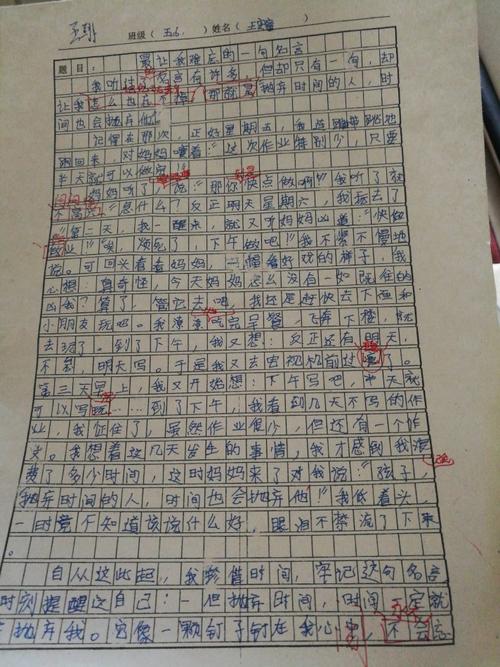 班级（五6）姓名（
题目：最让我难忘的一句名言
我听过名言有许多，但却只有一句，却
让我怎么也忘不掉，那就是抛弃时间的人，时
间也会抛弃他。
记得在那次，正好星期五，我连蹦带跳地
跑回来，对妈妈嚷着：“这次作业特别少，只要
半天就可以做完！”
妈妈听了，说：“那你快点做啊！”我听了就
不高兴：“急什么？反正明天星期六，我
第二天，我一醒来，就又听妈妈凶道：“快做
作业！”“唉，烦死了，下午做吧！”我不紧不慢地
说。可回头看看妈妈，一幅看好戏的样子，我
心想：真奇怪，今天妈妈怎么没有一如既往的
凶我？算了，管它去吧，我还是赶快去下面和
小朋友玩吧。我渣渣吃完早餐，飞奔下楼，玩
去了。到了下午，我又想：反正还有明天，
不到，明天写。于是我又去电视机前过了。
第三天早上，我又开始想：下午写吧，半天就
可以写完……到了下午，我看到几天不写的作
业，我怔住了，虽然作业很少，但还有一个作
文。我想着这几天发生的事情，我才感到我浪
费了多少时间，这时妈妈来了对我说：“孩子，
抛弃时间的人，时间也会抛弃他！”我低着头，
一时竟不知道该说什么好，眼泪不禁流了下来
。
自从这此起，我珍惜时间，牢记这句名言
时刻提醒这自己：一但抛弃时间，时间一定就
抛弃我。它像一颗钉子钉在我心 不会忘